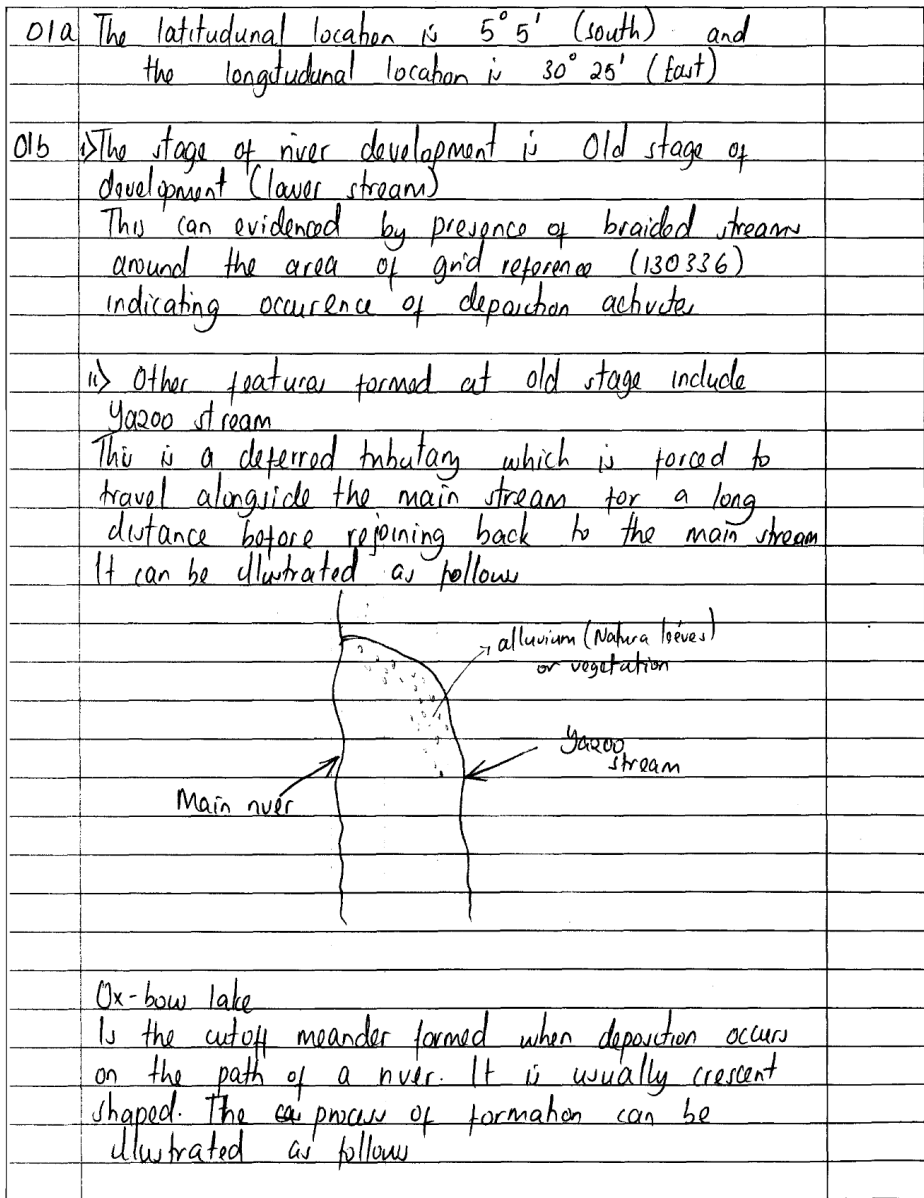 01a The latitudunal location is 5° 5' (south) and
the longitudunal location is 30° 25' (East)
01b i) The stage of river development is Old stage of
development (lower stream)
This can evidenced by presence of braided streams
around the area of grid reference (130336)
indicating occurence of deposition activites
ii) Other features formed at old stage include
Yazoo stream
This is a deferred tributary which is forced to
travel alongside the main stream for a long
distance before rejoining back to the main stream
It can be illustrated as follows
alluvium (Natura leeves)
or vegetation
Yazoo
stream
Main river
Ox-bow lake
Is the cutoff meander formed when deposition occurs
on the path of a river. It is usually crescent
shaped. The process of formation can be
illustrated as follows